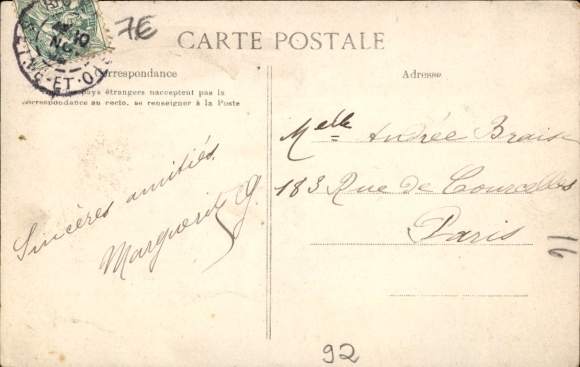 7E
CARTE POSTALE
Correspondance
pays étrangers n'acceptent pas la
correspondance au recto, se renseigner à la Poste
Sincères amitiés
Marguerite G.
Adresse
Melle Andrée
183 Rue de Courcelles
Paris
16
92